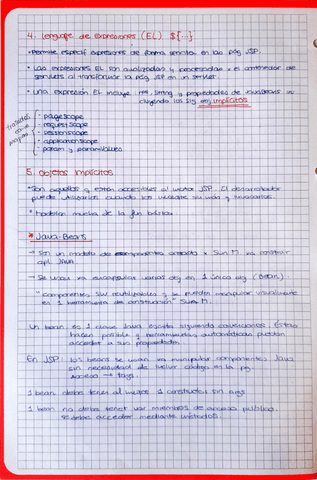 4. Lenguaje de expresiones (EL) ${...}
• Permite especif expresiones de forma sencilla en las pág JSP.
• Las expresiones EL son analizadas y procesadas x el contenedor de
servlets al transformar la pág JSP en un servlet
• Una expresión EL incluye nos, String y propiedades de JavaBeans in
cluyendo los sig obj implícitos
- pageScope
- requestScope
- sessionScope
- applicationScope
- param y paramValues
5. Objetos implícitos
• Son aquellos q están accesibles al motor JSP. El desarrollador
puede utilizarlos cuando los necesite sin
• Modelan mucha de la fun básica.
* Java-Beans
→ Son un modelo de componentes creado x Sun M. pa construir
apl. Java
→ Se usan pa encapsular varios obj en 1 único obj. (Bean)
"Componentes SW reutilizables q se puedan manipular visualmente
en 1 herramienta de construcción" Sun M.
Un bean: es 1 clase Java escrita siguiendo convenciones. Estas
hacen posible q herramientas automáticas puedan
acceder a sus propiedades.
En JSP: los beans se usan pa manipular componentes Java
sin necesidad de incluir código en la pg.
acceso → tags.
1 bean debe tener al menos 1 constructor sin args
1 bean no debe tener var miembros de acceso público.
se debe acceder mediante métodos.